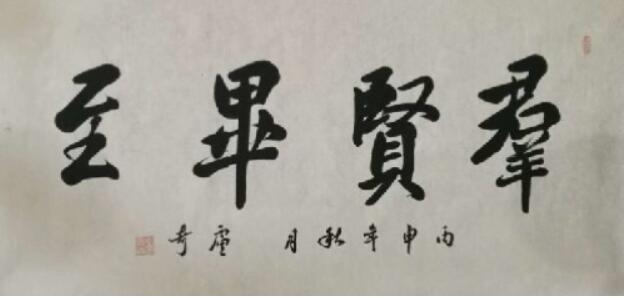 羣賢畢至
丙申年秋月 奇